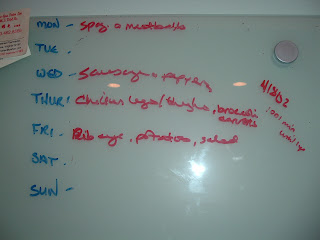 MON - Spag & meatballs
TUE.
WED - Sausage & peppers
THUR: Chicken legs/thighs, broccoli
carrots
FRI - Rib eye, potatoes, salad
SAT.
SUN -
4/30/02
min